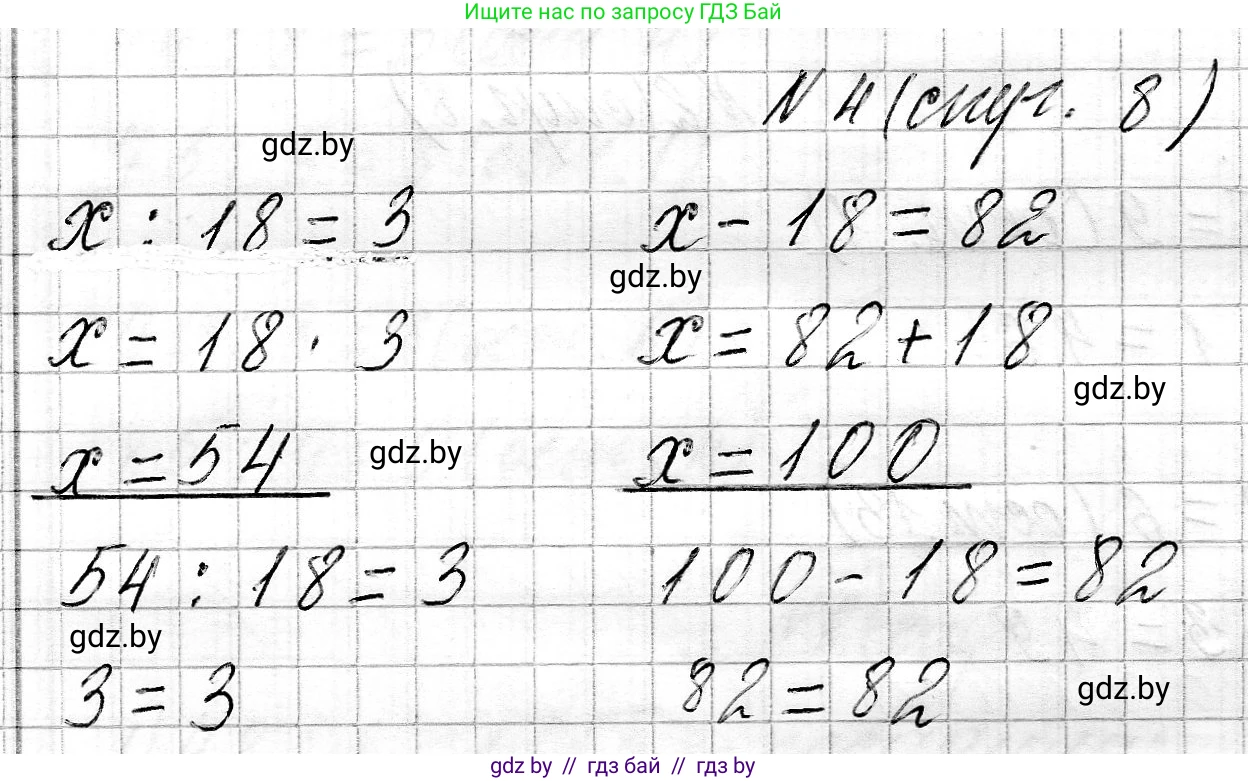 Ищите нас по запросу ГДЗ Бай
N 4 (стр. 8)
gdz.by
x : 18 = 3 x - 18 = 82
gdz.by
x = 18 · 3 x = 82 + 18
gdz.by
x = 54 gdz.by x = 100
54 : 18 = 3 100 - 18 = 82
gdz.by
3 = 3 82 = 82 gdz.by
gdz by // гдз бай // gdz by